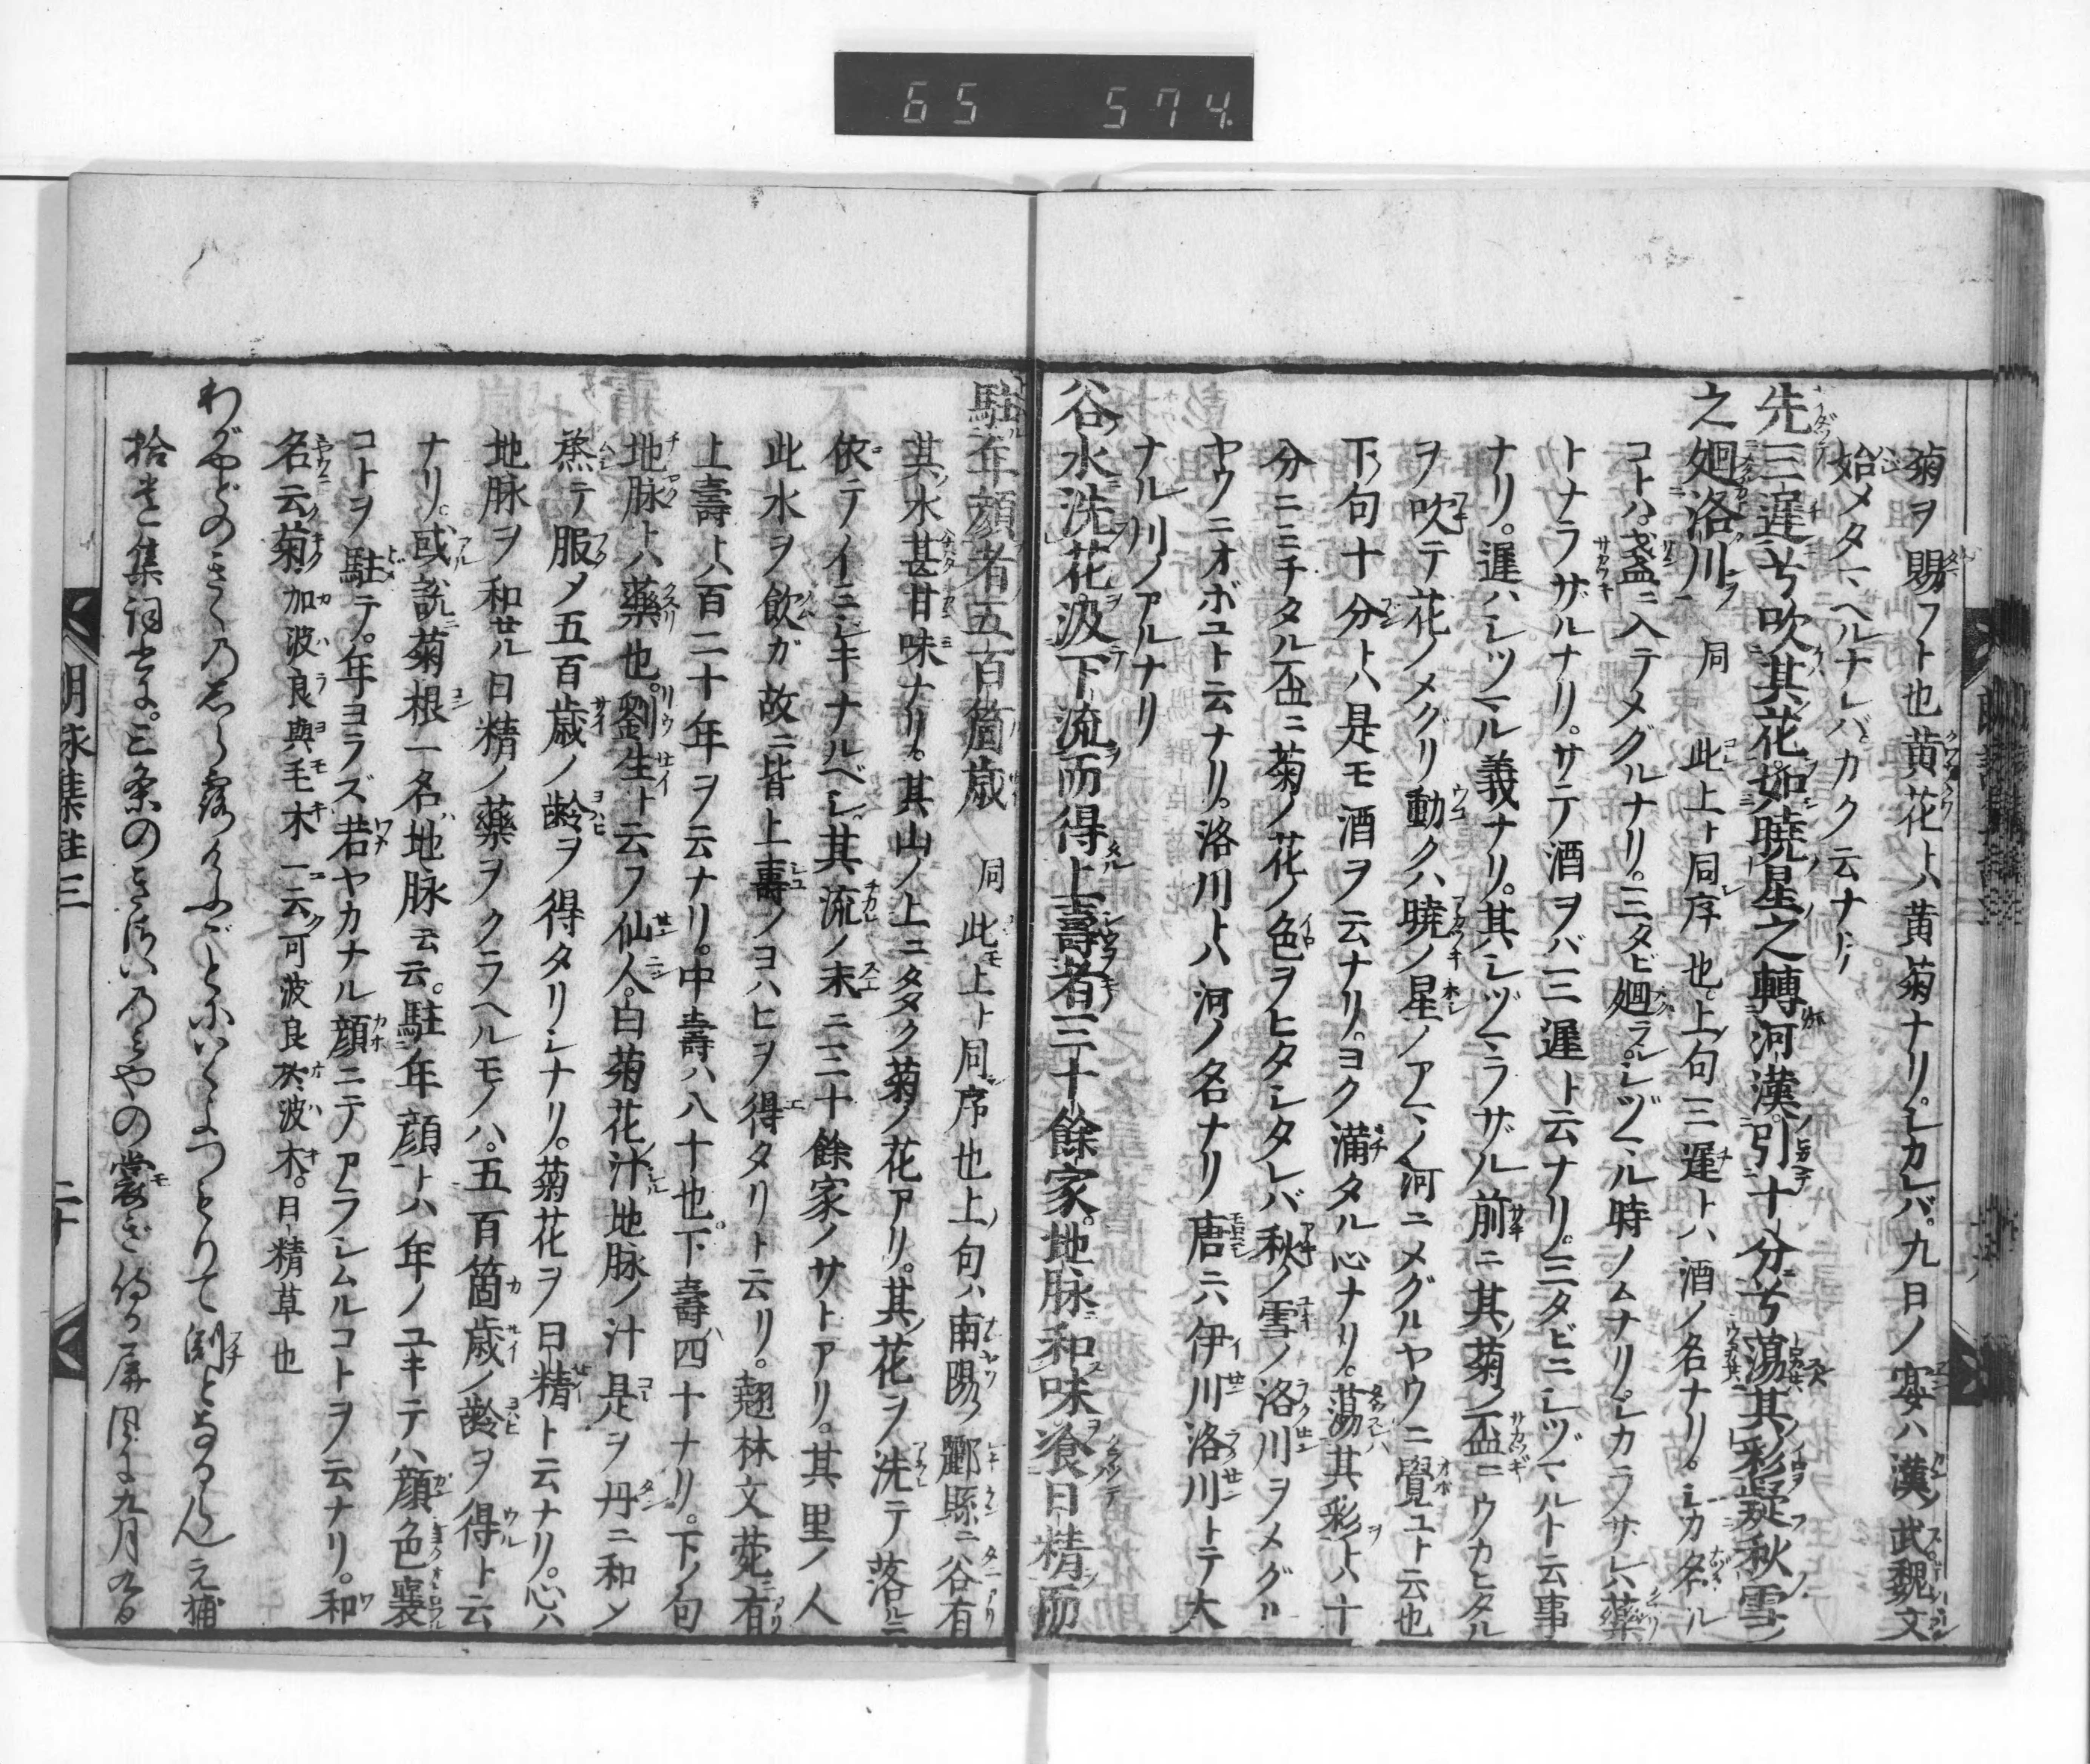 65 574
菊ヲ賜フト也黄花トハ黄菊ナリ。シカレバ。九日ノ宴ハ漢ノ武魏文
始メタマヘルナレバ。カク云ナリ
先三遅兮吹其花。如暁星之轉河漢。引十分兮蕩其彩。疑秋雪
之廻洛川 同 此上ト同序也。上句三遅トハ酒ノ名ナリ。シカ名ル
コトハ。盞ニ入テメグルナリ。三タビ廻ラシ。シヅマル時ノムナリ。シカラサレハ藥
トナラザルナリ。サテ酒ヲバ三遅ト云ナリ。三タビニシヅマルト云事
ナリ。遅ハシツマル義ナリ。其シヅマラザル前ニ其菊ノ盃ニウカヒタル
ヲ吹テ花ノメグリ動クハ暁ノ星ノアマノ河ニメグルヤウニ覺ユト云也
下句十分トハ是モ酒ヲ云ナリ。ヨク滿タル心ナリ。蕩其彩トハ十
分ニミチタル盃ニ菊ノ花ノ色ヲヒタシタレバ秋ノ雪ノ洛川ヲメグル
ヤウニオボユト云ナリ。洛川トハ河ノ名ナリ唐ニハ伊川洛川トテ大
ナル川ノアルナリ
谷水洗花汲下流而得上壽者三十餘家。地脉和味飡日精而
駐年顔者五百箇歳 同 此モ上ト同序也上ノ句ハ南陽ノ酈縣ニ谷有
其水甚甘味ナリ。其山ノ上ニタヾク菊ノ花アリ。其花ヲ洗テ落ルニ
依テノイニシキナルベシ。其流ノ末ニ三十餘家ノサトアリ。其里ノ人
此水ヲ飲ガ故ニ皆上壽ノヨハヒヲ得タリト云リ。翹林文菀ニ有
上壽トハ百二十年ヲ云ナリ。中壽ハ八十也。下壽ハ四十ナリ。下ノ句
地脉トハ藥也。劉生ト云フ仙人。白菊花ノ汁地脉ノ汁是ヲ丹ニ和ン
蒸テ服メ五百歳ノ齢ヲ得タリシナリ。菊花ヲ日精ト云ナリ。心ハ
地脉ヲ和せル日精ノ藥ヲクラヘルモノハ。五百箇歳ノ齢ヲ得ト云
ナリ。或説ニ菊根一名ハ地脉云云。駐年顔トハ年ノユキテハ顔色衰
コトヲ駐テ。年ヨラズ若ヤカナル顔ニテアラシムルコトヲ云ナリ。和
名云菊加波良與毛木一云可波良於波木。日精草也
わがやどのきくの志ら露けふごとにいくよつもりて渕となるらん 元輔
拾遺集詞書に。三条のきさいのみやの裳ぎ侍る屏風に九月九日
朗詠集註三 二十